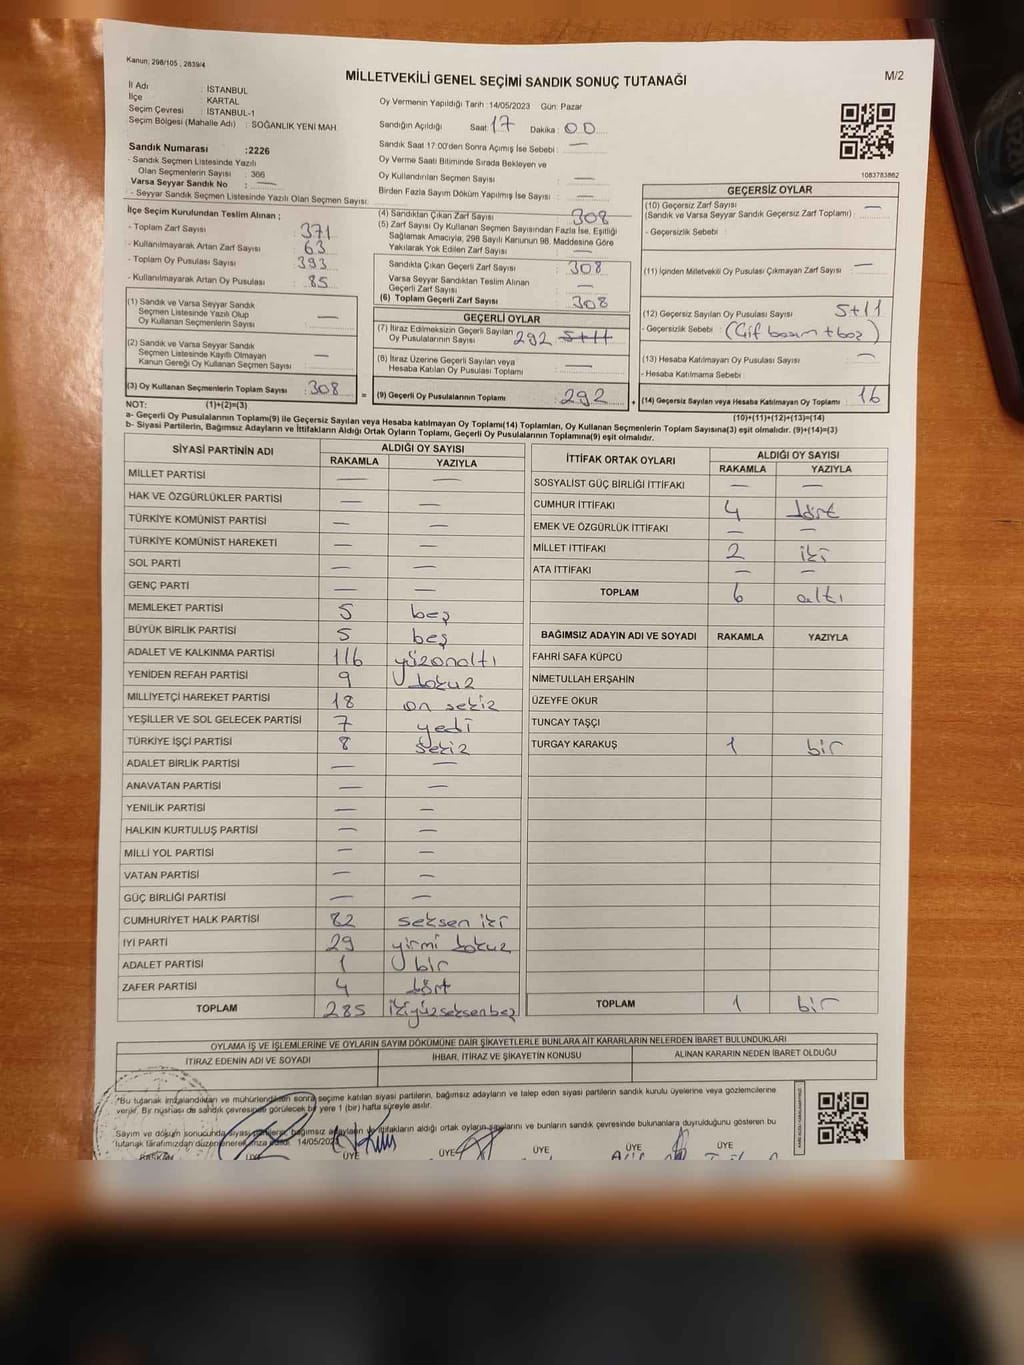 Kanun, 298/105 , 2839/4
MİLLETVEKİLİ GENEL SEÇİMİ SANDIK SONUÇ TUTANAĞI
M/2
İl Adı : İSTANBUL
İlçe : KARTAL
Seçim Çevresi : İSTANBUL-1
Seçim Bölgesi (Mahalle Adı) : SOĞANLIK YENİ MAH
Sandık Numarası :2226
- Sandık Seçmen Listesinde Yazılı
Olan Seçmenlerin Sayısı : 366
Varsa Seyyar Sandık No : —
- Seyyar Sandık Seçmen Listesinde Yazılı Olan Seçmen Sayısı:
Oy Vermenin Yapıldığı Tarih :14/05/2023 Gün: Pazar
Sandığın Açıldığı Saat: 17 Dakika : 00
Sandık Saat 17:00'den Sonra Açımış İse Sebebi : —
Oy Verme Saati Bitiminde Sırada Bekleyen ve
Oy Kullandırılan Seçmen Sayısı : —
Birden Fazla Sayım Döküm Yapılmış İse Sayısı : —
1083783862
İlçe Seçim Kurulundan Teslim Alınan ;
- Toplam Zarf Sayısı : 371
- Kullanılmayarak Artan Zarf Sayısı : 63
- Toplam Oy Pusulası Sayısı : 393
- Kullanılmayarak Artan Oy Pusulası : 85
(1) Sandık ve Varsa Seyyar Sandık
Seçmen Listesinde Yazılı Olup
Oy Kullanan Seçmenlerin Sayısı : —
(2) Sandık ve Varsa Seyyar Sandık
Seçmen Listesinde Kayıtlı Olmayan
Kanun Gereği Oy Kullanan Seçmen Sayısı : —
(3) Oy Kullanan Seçmenlerin Toplam Sayısı : 308
(4) Sandıktan Çıkan Zarf Sayısı : 308
(5) Zarf Sayısı Oy Kullanan Seçmen Sayısından Fazla İse, Eşitliği
Sağlamak Amacıyla, 298 Sayılı Kanunun 98. Maddesine Göre
Yakılarak Yok Edilen Zarf Sayısı : —
Sandıkta Çıkan Geçerli Zarf Sayısı : 308
Varsa Seyyar Sandıktan Teslim Alınan
Geçerli Zarf Sayısı : —
(6) Toplam Geçerli Zarf Sayısı : 308
GEÇERLİ OYLAR
(7) İtiraz Edilmeksizin Geçerli Sayılan
Oy Pusulalarının Sayısı : 292 5+11
(8) İtiraz Üzerine Geçerli Sayılan veya
Hesaba Katılan Oy Pusulası Toplamı : —
= (9) Geçerli Oy Pusulalarının Toplamı : 292
GEÇERSİZ OYLAR
(10) Geçersiz Zarf Sayısı
(Sandık ve Varsa Seyyar Sandık Geçersiz Zarf Toplamı) : —
- Geçersizlik Sebebi :
(11) İçinden Milletvekili Oy Pusulası Çıkmayan Zarf Sayısı : —
(12) Geçersiz Sayılan Oy Pusulası Sayısı : 5+11
- Geçersizlik Sebebi : (Çif basım + boş)
(13) Hesaba Katılmayan Oy Pusulası Sayısı : —
- Hesaba Katılmama Sebebi :
+ (14) Geçersiz Sayılan veya Hesaba Katılmayan Oy Toplamı : 16
NOT: (1)+(2)=(3)
(10)+(11)+(12)+(13)=(14)
a- Geçerli Oy Pusulalarının Toplamı(9) ile Geçersiz Sayılan veya Hesaba Katılmayan Oy Toplamı(14) Toplamları, Oy Kullanan Seçmenlerin Toplam Sayısına(3) eşit olmalıdır. (9)+(14)=(3)
b- Siyasi Partilerin, Bağımsız Adayların ve İttifakların Aldığı Ortak Oyların Toplamı, Geçerli Oy Pusulalarının Toplamına(9) eşit olmalıdır.
SİYASİ PARTİNİN ADI ALDIĞI OY SAYISI
RAKAMLA YAZIYLA
MİLLET PARTİSİ — —
HAK VE ÖZGÜRLÜKLER PARTİSİ — —
TÜRKİYE KOMÜNİST PARTİSİ — —
TÜRKİYE KOMÜNİST HAREKETİ — —
SOL PARTİ — —
GENÇ PARTİ — —
MEMLEKET PARTİSİ 5 beş
BÜYÜK BİRLİK PARTİSİ 5 beş
ADALET VE KALKINMA PARTİSİ 116 yüzonaltı
YENİDEN REFAH PARTİSİ 9 dokuz
MİLLİYETÇİ HAREKET PARTİSİ 18 on sekiz
YEŞİLLER VE SOL GELECEK PARTİSİ 7 yedi
TÜRKİYE İŞÇİ PARTİSİ 8 sekiz
ADALET BİRLİK PARTİSİ — —
ANAVATAN PARTİSİ — —
YENİLİK PARTİSİ — —
HALKIN KURTULUŞ PARTİSİ — —
MİLLİ YOL PARTİSİ — —
VATAN PARTİSİ — —
GÜÇ BİRLİĞİ PARTİSİ — —
CUMHURİYET HALK PARTİSİ 82 seksen iki
İYİ PARTİ 29 yirmi dokuz
ADALET PARTİSİ 1 bir
ZAFER PARTİSİ 4 dört
TOPLAM 285 ikiyüzseksenbeş
İTTİFAK ORTAK OYLARI ALDIĞI OY SAYISI
RAKAMLA YAZIYLA
SOSYALİST GÜÇ BİRLİĞİ İTTİFAKI — —
CUMHUR İTTİFAKI 4 dört
EMEK VE ÖZGÜRLÜK İTTİFAKI — —
MİLLET İTTİFAKI 2 iki
ATA İTTİFAKI — —
TOPLAM 6 altı
BAĞIMSIZ ADAYIN ADI VE SOYADI RAKAMLA YAZIYLA
FAHRİ SAFA KÜPCÜ
NİMETULLAH ERŞAHİN
ÜZEYFE OKUR
TUNCAY TAŞÇI
TURGAY KARAKUŞ 1 bir
TOPLAM 1 bir
OYLAMA İŞ VE İŞLEMLERİNE VE OYLARIN SAYIM DÖKÜMÜNE DAİR ŞİKAYETLERLE BUNLARA AİT KARARLARIN NELERDEN İBARET BULUNDUKLARI
İTİRAZ EDENİN ADI VE SOYADI İHBAR, İTİRAZ VE ŞİKAYETİN KONUSU ALINAN KARARIN NEDEN İBARET OLDUĞU
*Bu tutanak imzalandıktan ve mühürlendikten sonra seçime katılan siyasi partilerin, bağımsız adayların ve talep eden siyasi partilerin sandık kurulu üyelerine veya gözlemcilerine
verilir. Bir nüshası da sandık çevresinde görülecek bir yere 1 (bir) hafta süreyle asılır.
Sayım ve döküm sonucunda siyasi partilerin, bağımsız adayların ve ittifakların aldığı ortak oyların sayılarını ve bunların sandık çevresinde bulunanlara duyrulduğunu gösteren bu
tutanak tarafımızdan düzenlenerek imza edildi. 14/05/2023
BAŞKAN ÜYE ÜYE ÜYE ÜYE ÜYE ÜYE